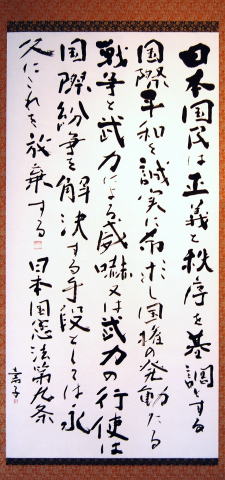 日本国民は正義と秩序を基調とする
国際平和を誠実に希求し国権の発動たる
戦争と武力による威嚇又は武力の行使は
国際紛争を解決する手段としては永
久にこれを放棄する 日本国憲法第九条